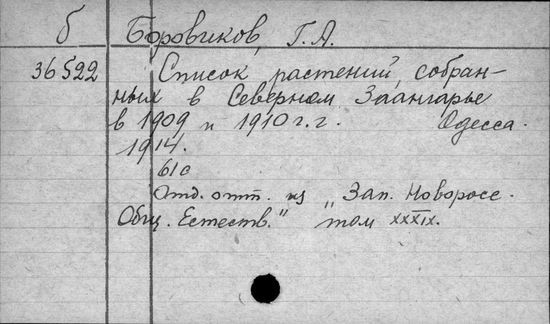 б Боровиков, Г. А.
36522 Список растений, собран-
ных в Северном Заангарье
в 1909 и 1910 г.г. Одесса.
1914.
61 с
Отд. отт. из „Зап. Новоросс.
Общ. Естеств." том XXXIX.